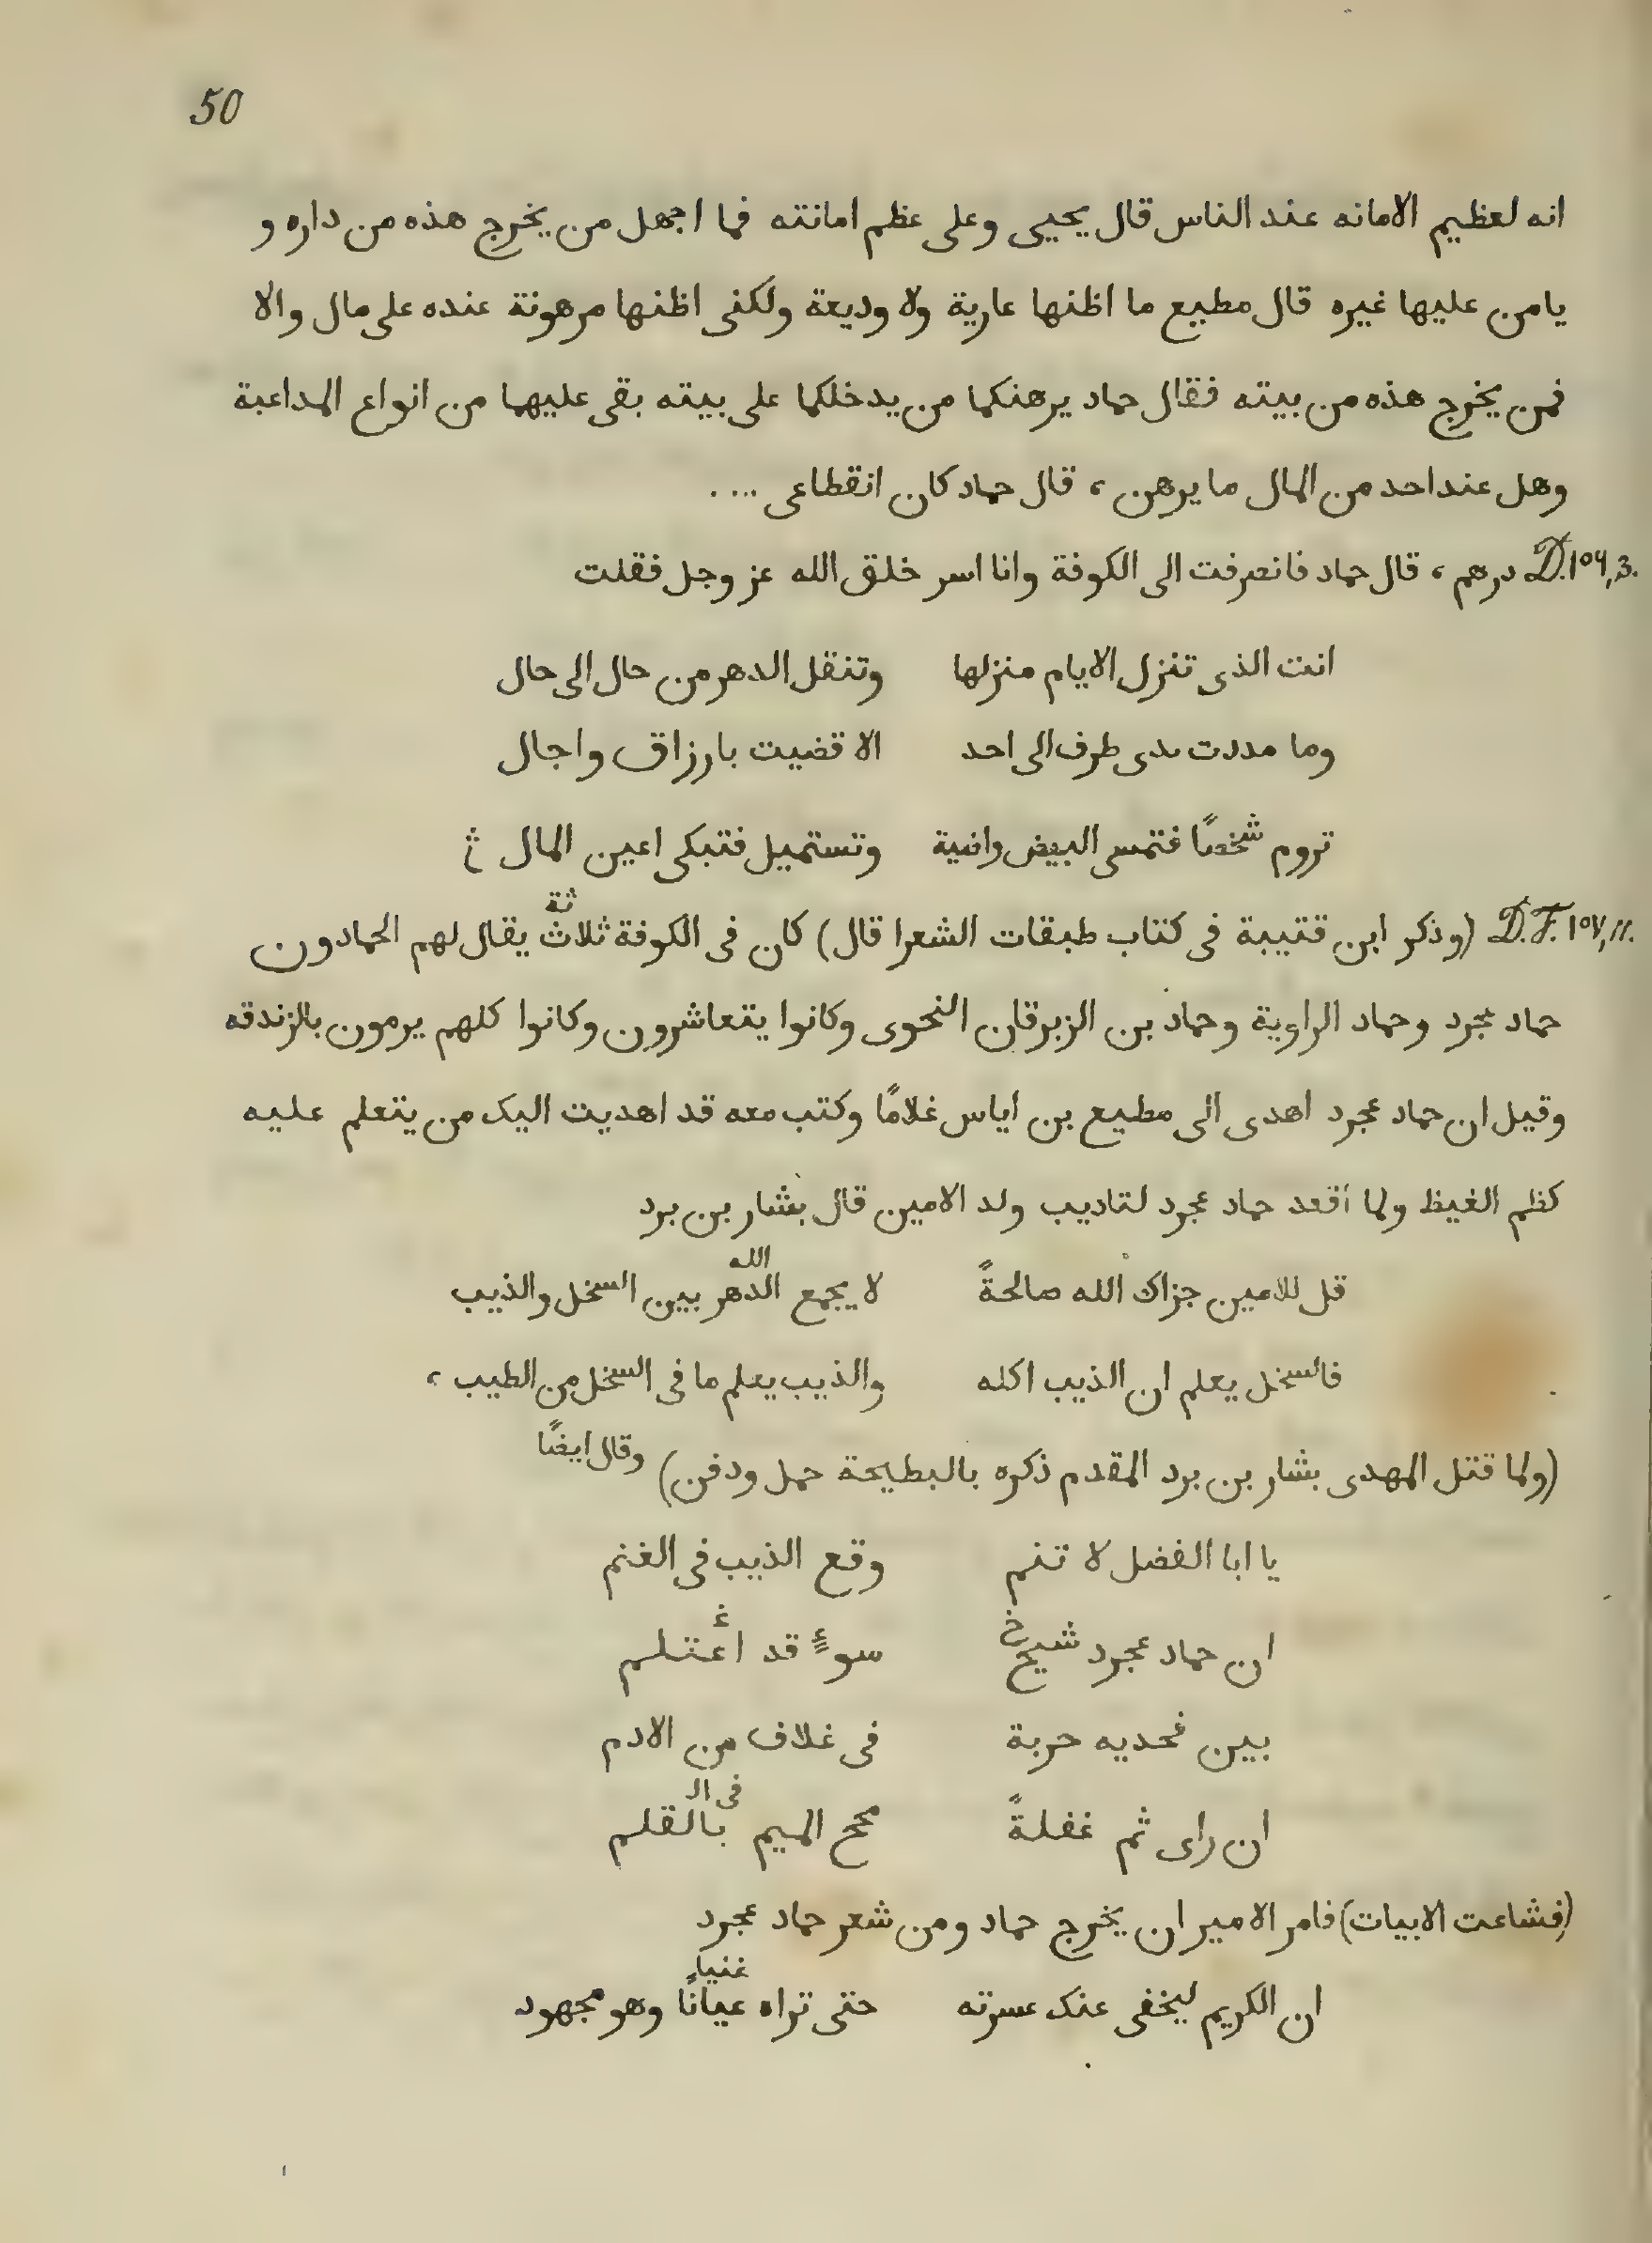 50
انه لعظيم الامانه عند الناس قال يحيى وعلى عظم امانته فما اجهل من يخرج هذه من داره و
يامن عليها غيره قال مطيع ما اظنها عارية ولا وديعة ولكنى اظنها مرهونة عنده على مال والا
فمن يخرج هذه من بيته فقال حماد يرهنكما من يدخلكما على بيته بقى عليهما من انواع المداعبة
وهل عند احد من المال ما يرهن ، قال حماد كان انقطاعى ....
D.١٥٤,3. درهم ، قال حماد فانصرفت الى الكوفة وانا اسر خلق الله عز وجل فقلت
انت الذى تنزل الايام منزلها وتنقل الدهر من حال الى حال
وما مددت مدى طرف الى احد الا قضيت بارزاق واجال
تروم شخصًا فتمسى البيض راضية وتستميل فتبكى اعين المال
D.F. ١٥٧,11. (وذكر ابن قتيبة فى كتاب طبقات الشعرا قال) كان فى الكوفة ثلاث يقال لهم الحمادون
ثة
حماد عجرد وحماد الراوية وحماد بن الزبرقان النحوى وكانوا يتعاشرون وكانوا كلهم يرمون بالزندقه
وقيل ان حماد عجرد اهدى الى مطيع بن اياس غلامًا وكتب معه قد اهديت اليك من يتعلم عليه
كظم الغيظ ولما اقعد حماد عجرد لتاديب ولد الامين قال بشار بن برد
قل للامين جزاك الله صالحةً لا يجمع الدهر بين السخل والذيب
الله
فالسخل يعلم ان الذيب اكله والذيب يعلم ما فى السخل من الطيب ،
(ولما قتل المهدى بشار بن برد المقدم ذكره بالبطيحة حمل ودفن) وقال ايضًا
يا ابا الفضل لا تنم وقع الذيب فى الغنم
ان حماد عجرد شيخ سوءٍ قد اغتلم
بين فخديه حربة فى غلاف من الادم
ان راى ثم غفلةً مجمج الميم بالقلم
فى ال
(فشاعت الابيات) فامر الامير ان يخرج حماد ومن شعر حماد عجرد
ان الكريم ليخفى عنك عسرته حتى تراه عيانًا وهو مجهود
غنيا